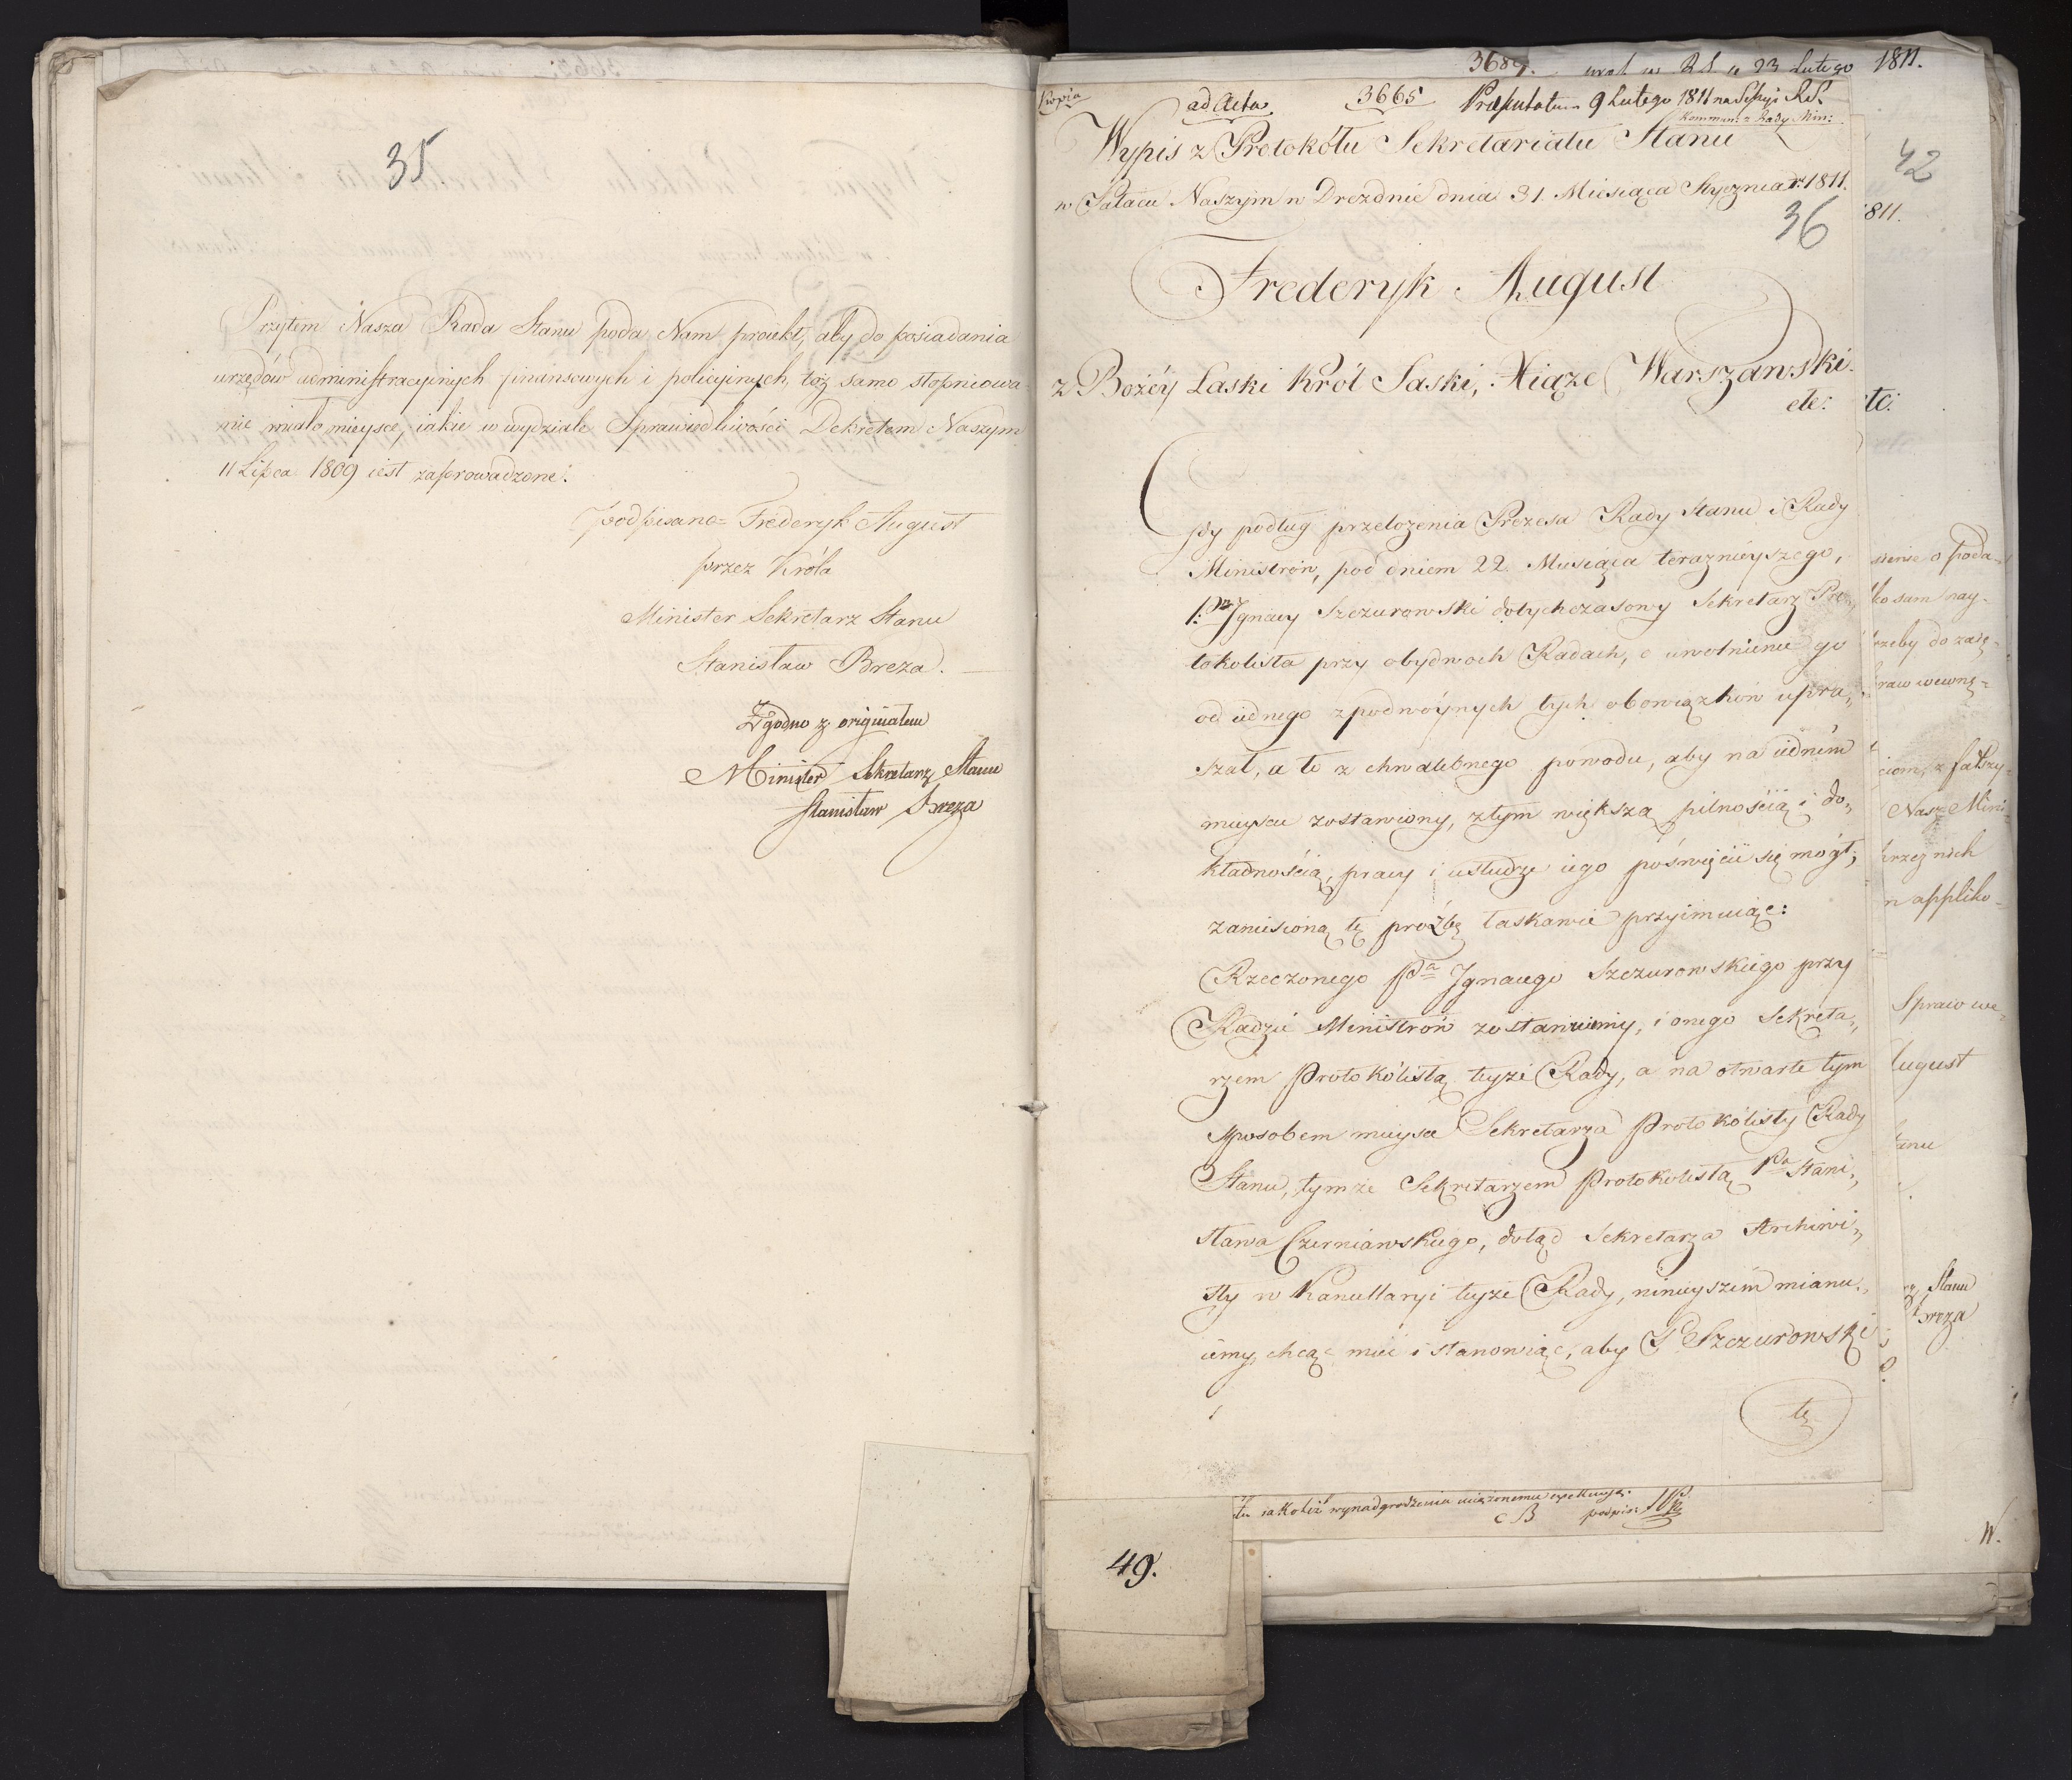 35
Przytem Nasza Rada Stanu poda Nam proiekt, aby do posiadania
urzędów administracyinych finansowych i policyinych, toż samo stopniowa-
nie miało mieysce, iakie w wydziale Sprawiedliwości Dekretem Naszym
11 Lipca 1809 iest zaprowadzone.
podpisano Frederyk August
przez Króla
Minister Sekretarz Stanu
Stanisław Breza.
Zgodno z originałem
Minister Sekretarz Stanu
Stanisław Breza
3689. w R.S. 23 Lutego 1811.
Kopia
ad Acta 3665 Praesentatum 9 Lutego 1811 na Sessyi R.S.
Kommun: z Rady Min:
Wypis z Protokółu Sekretariatu Stanu
w Pałacu Naszym w Dreznie dnia 31. Miesiąca Stycznia r. 1811.
42
36
1811.
Frederyk August
z Bożéy Łaski Król Saski, Xiąże Warszawski.
etc:
tc:
Gdy podług przełożenia Prezesa Rady Stanu i Rady
Ministrów, pod dniem 22. Miesiąca teraznieyszego,
P. Ignacy Szczurowski dotychczasowy Sekretarz Pro„
tokolista przy obydwoch Radach, o uwolnienie go
od iednego z podwóynych tych obowiązków upra„
szał, a to z chwalebnego powodu, aby na iedném
mieyscu zostawiony, z tym większą pilnością i do„
kładnością, pracy i usłudze iego poświęcić się mógł;
zaniesioną tę proźbę łaskawie przyimuiąc:
Rzeczonego Pa Ignacego Szczurowskiego przy
Radzie Ministrów zostawuiemy, i onego Sekreta„
rzem Protokólistą teyże Rady, a na otwarte tym
sposobem mieysce Sekretarza Protokólisty Rady
Stanu, tymże Sekretarzem Protokolistą Pa Stani„
sława Czerniawskiego, dotąd Sekretarza Archiwi„
sty w Kancellaryi teyże Rady, ninieyszém mianu„
iemy, chcąc mieć i stanowiąc, aby P. Szczurowski
tę
iakotéż wynadgrodzenia
podpis:
49.
o poda-
ko sam nay-
rzeby do zaię-
raw wewnę-
z fałszy-
Nasz Mini-
przez nich
n appliko-
Spraw we-
August
tanu
Stanu
Breza
W.